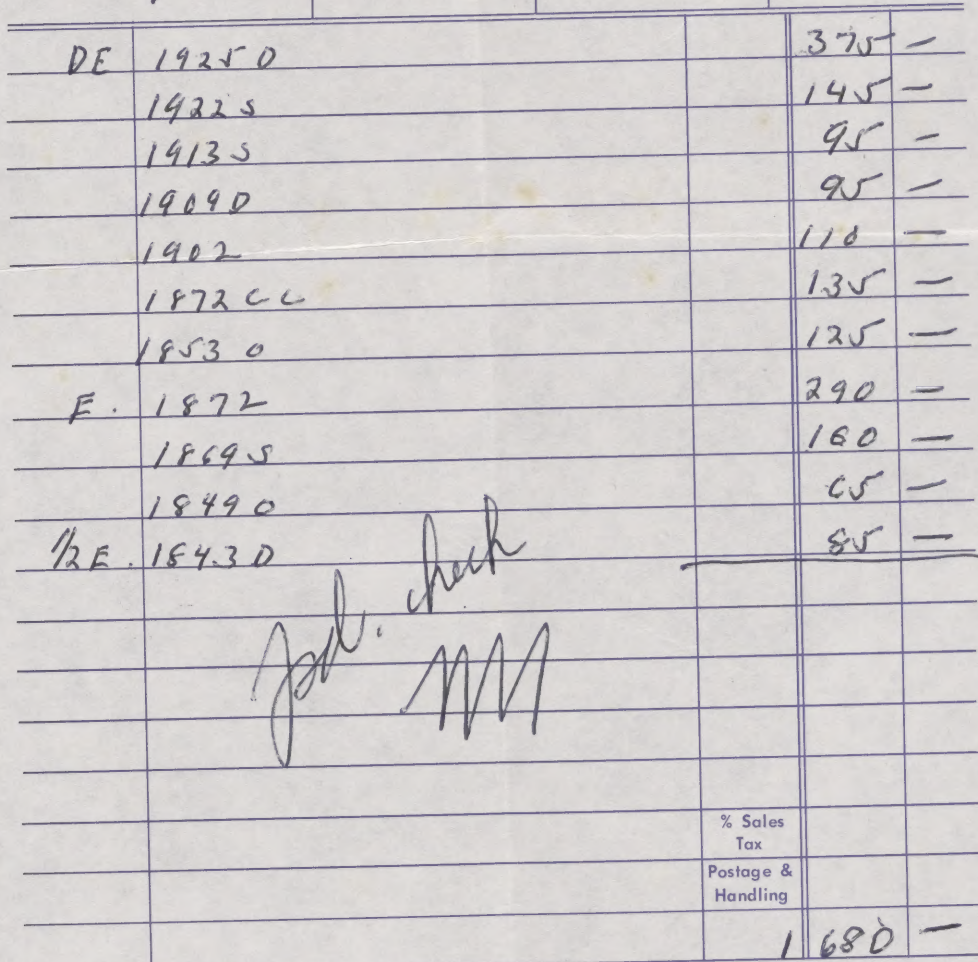 DE 1925 D 375 —
1922 S 145 —
1913 S 95 —
1909 D 95 —
1902 110 —
1872 CC 135 —
1853 O 125 —
E. 1872 290 —
1869 S 160 —
1849 O 65 —
1/2 E. 1843 D 85 —
pd. check
% Sales
Tax
Postage &
Handling
1 680 —